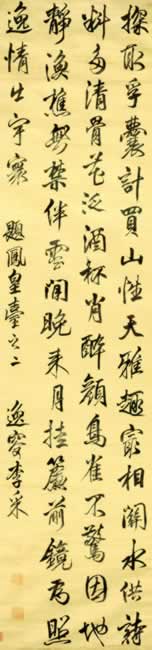 探取孚囊計買山性天雅趣最相關水供詩
料多清骨花泛酒杯肖醉顏鳥雀不驚因地
靜漁樵無禁伴雲閒晚來月挂簾前鏡為照
逸情出宇寰 題鳳皇臺之二 逸叟李采